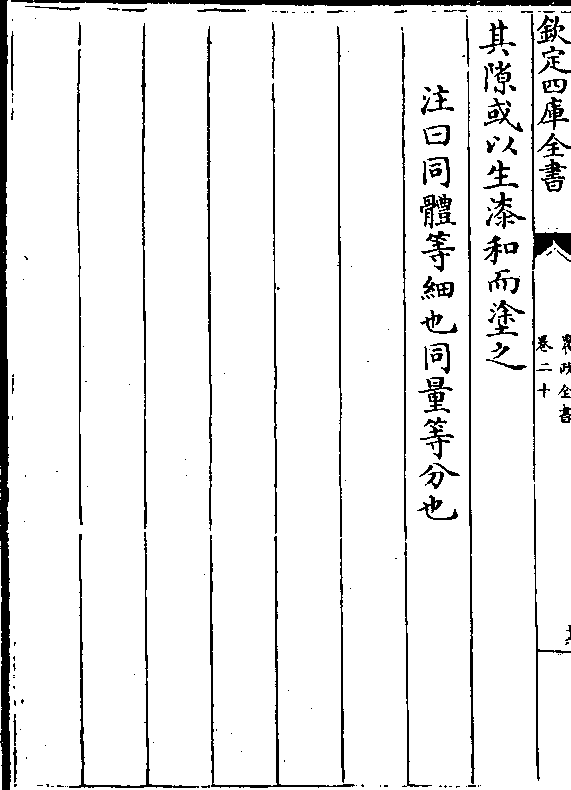 欽定四庫全書
農政全書
卷二十
其隙或以生漆和而塗之
注曰同體等細也同量等分也